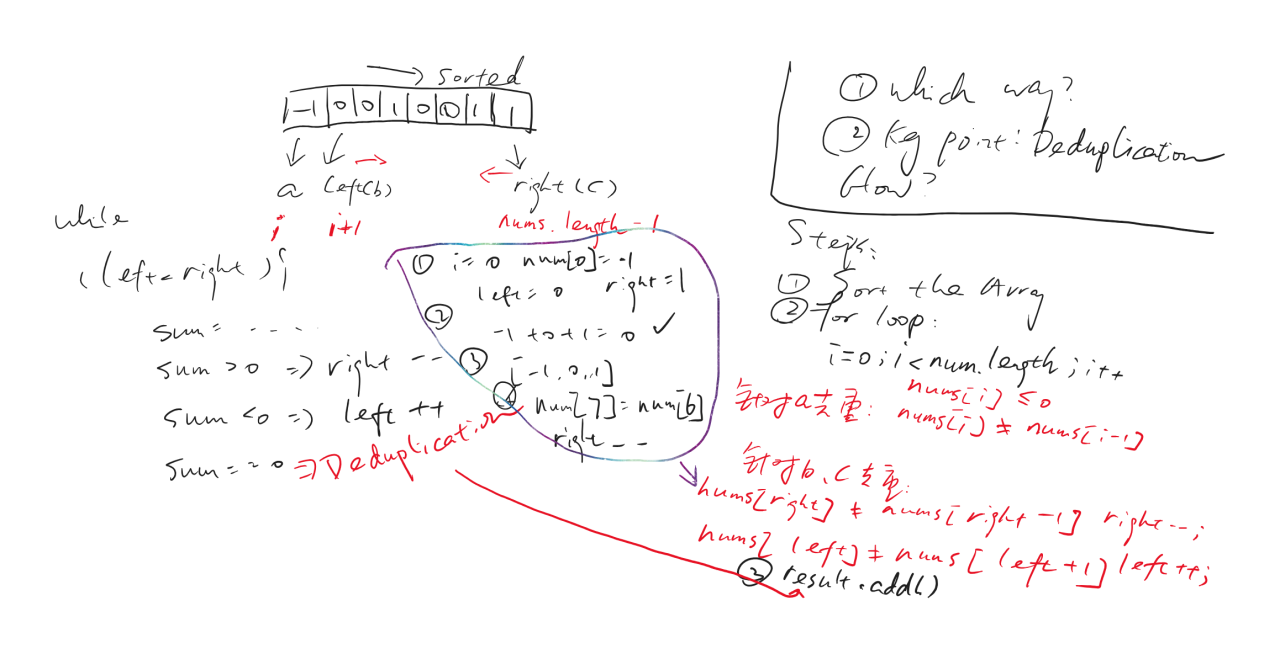 → Sorted
-1 0 0 1 0 0 1 1
a left(b) right(c)
i i+1 nums.length-1
while
(left<right){
sum= - - - -
sum>0 => right --
sum<0 => left ++
sum==0 => Deduplication
① i=0 num[0]=-1
left=0 right=1
②
-1+0+1=0 ✓
③ [-1,0,1]
④ num[7]=num[6]
right --
① which way?
② Key point: Deduplication
How?
Steps:
① Sort the Array
② for loop:
i=0;i<num.length;i++
nums[i]≤0
针对a去重: nums[i]≠nums[i-1]
针对b、c去重:
nums[right]≠nums[right-1] right--;
nums[left]≠nums[left+1] left++;
③ result.add()